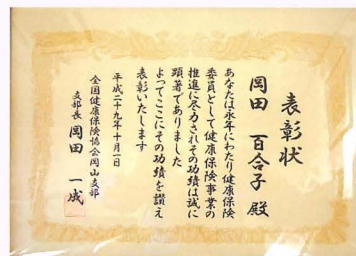 表彰状
岡田 百合子 殿
あなたは永年にわたり健康保険
委員として健康保険事業の
推進に尽力されその功績は誠に
顕著でありました
よってここにその功績を讃え
表彰いたします
平成二十九年十月一日
全国健康保険協会岡山支部
支部長 岡田 一成